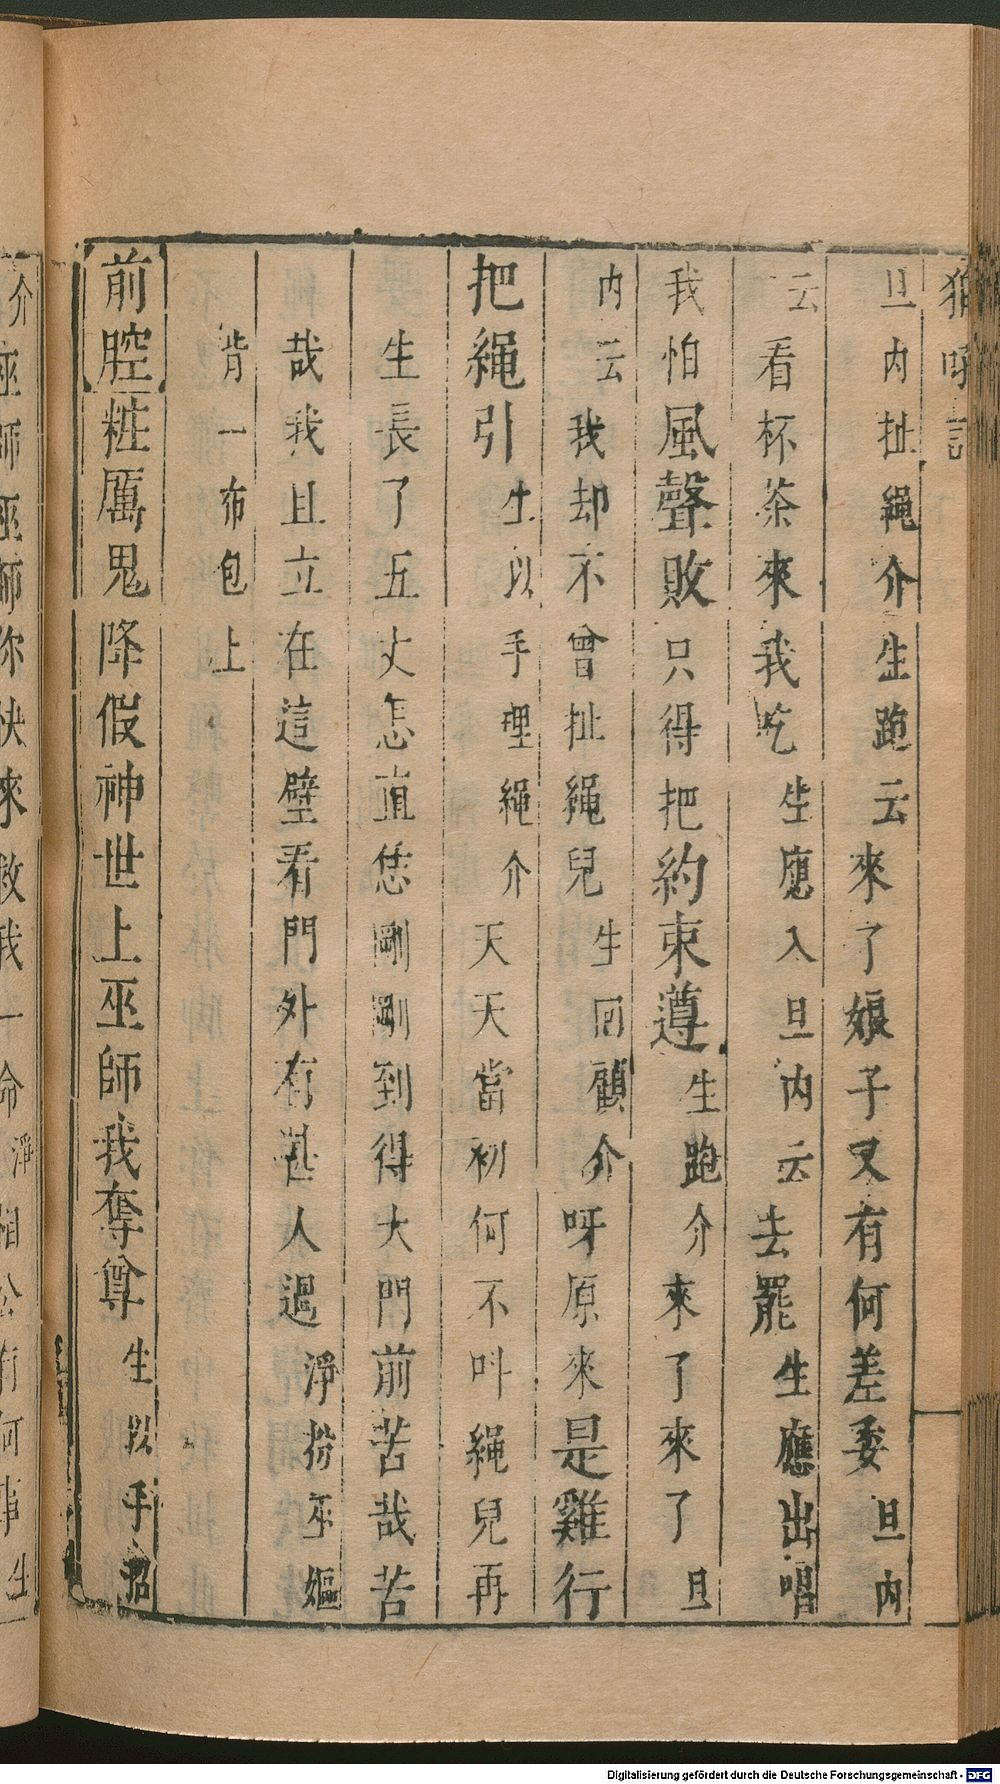 旦内扯繩介生跑云來了娘子又有何差委旦内
云看杯茶來我吃生應入旦内云去罷生應出唱
我怕風聲敗只得把約束遵生跑介來了來了旦
内云我却不曾扯繩兒生回顧介呀原來是雞行
把繩引生以手理繩介天天當初何不叫繩兒再
生長了五丈怎直恁剛剛到得大門前苦哉苦
哉我且立在這壁看門外有甚人過淨扮巫嫗
背一布包上
前腔粧厲鬼降假神世上巫師我奪尊生以手招
介巫師巫師你快來救我一命淨相公有何事生
Digitalisierung gefördert durch die Deutsche Forschungsgemeinschaft - DFG